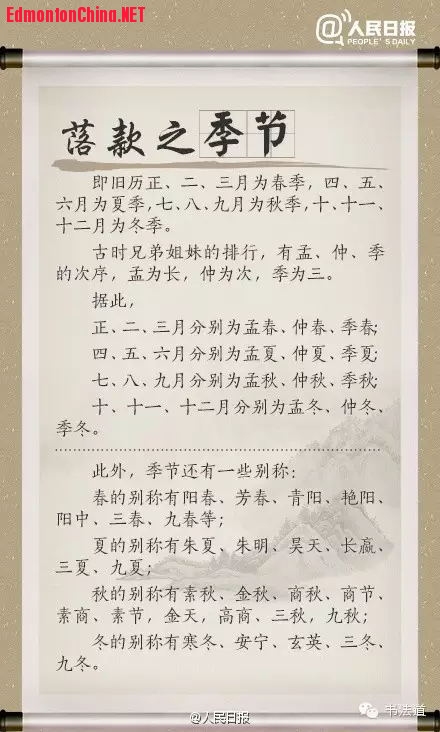 EdmontonChina.NET
@人民日报
PEOPLE'S DAILY
落款之季节
即旧历正、二、三月为春季，四、五、
六月为夏季，七、八、九月为秋季，十、十一、
十二月为冬季。
古时兄弟姐妹的排行，有孟、仲、季
的次序，孟为长，仲为次，季为三。
据此，
正、二、三月分别为孟春、仲春、季春；
四、五、六月分别为孟夏、仲夏、季夏；
七、八、九月分别为孟秋、仲秋、季秋；
十、十一、十二月分别为孟冬、仲冬、
季冬。
此外，季节还有一些别称：
春的别称有阳春、芳春、青阳、艳阳、
阳中、三春、九春等；
夏的别称有朱夏、朱明、昊天、长嬴、
三夏、九夏；
秋的别称有素秋、金秋、商秋、商节、
素商、素节，金天，高商、三秋，九秋；
冬的别称有寒冬、安宁、玄英、三冬、
九冬。
@人民日报
书法道